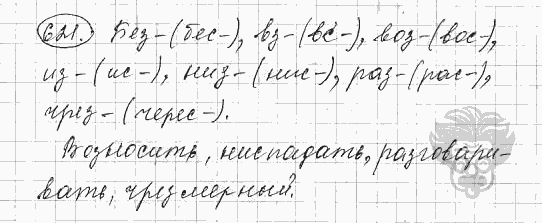 621. Без-(бес-), вз-(вс-), воз-(вос-),
из-(ис-), низ-(нис-), раз-(рас-),
чрез-(черес-).
Возносить, ниспадать, разговари-
вать, чрезмерный.